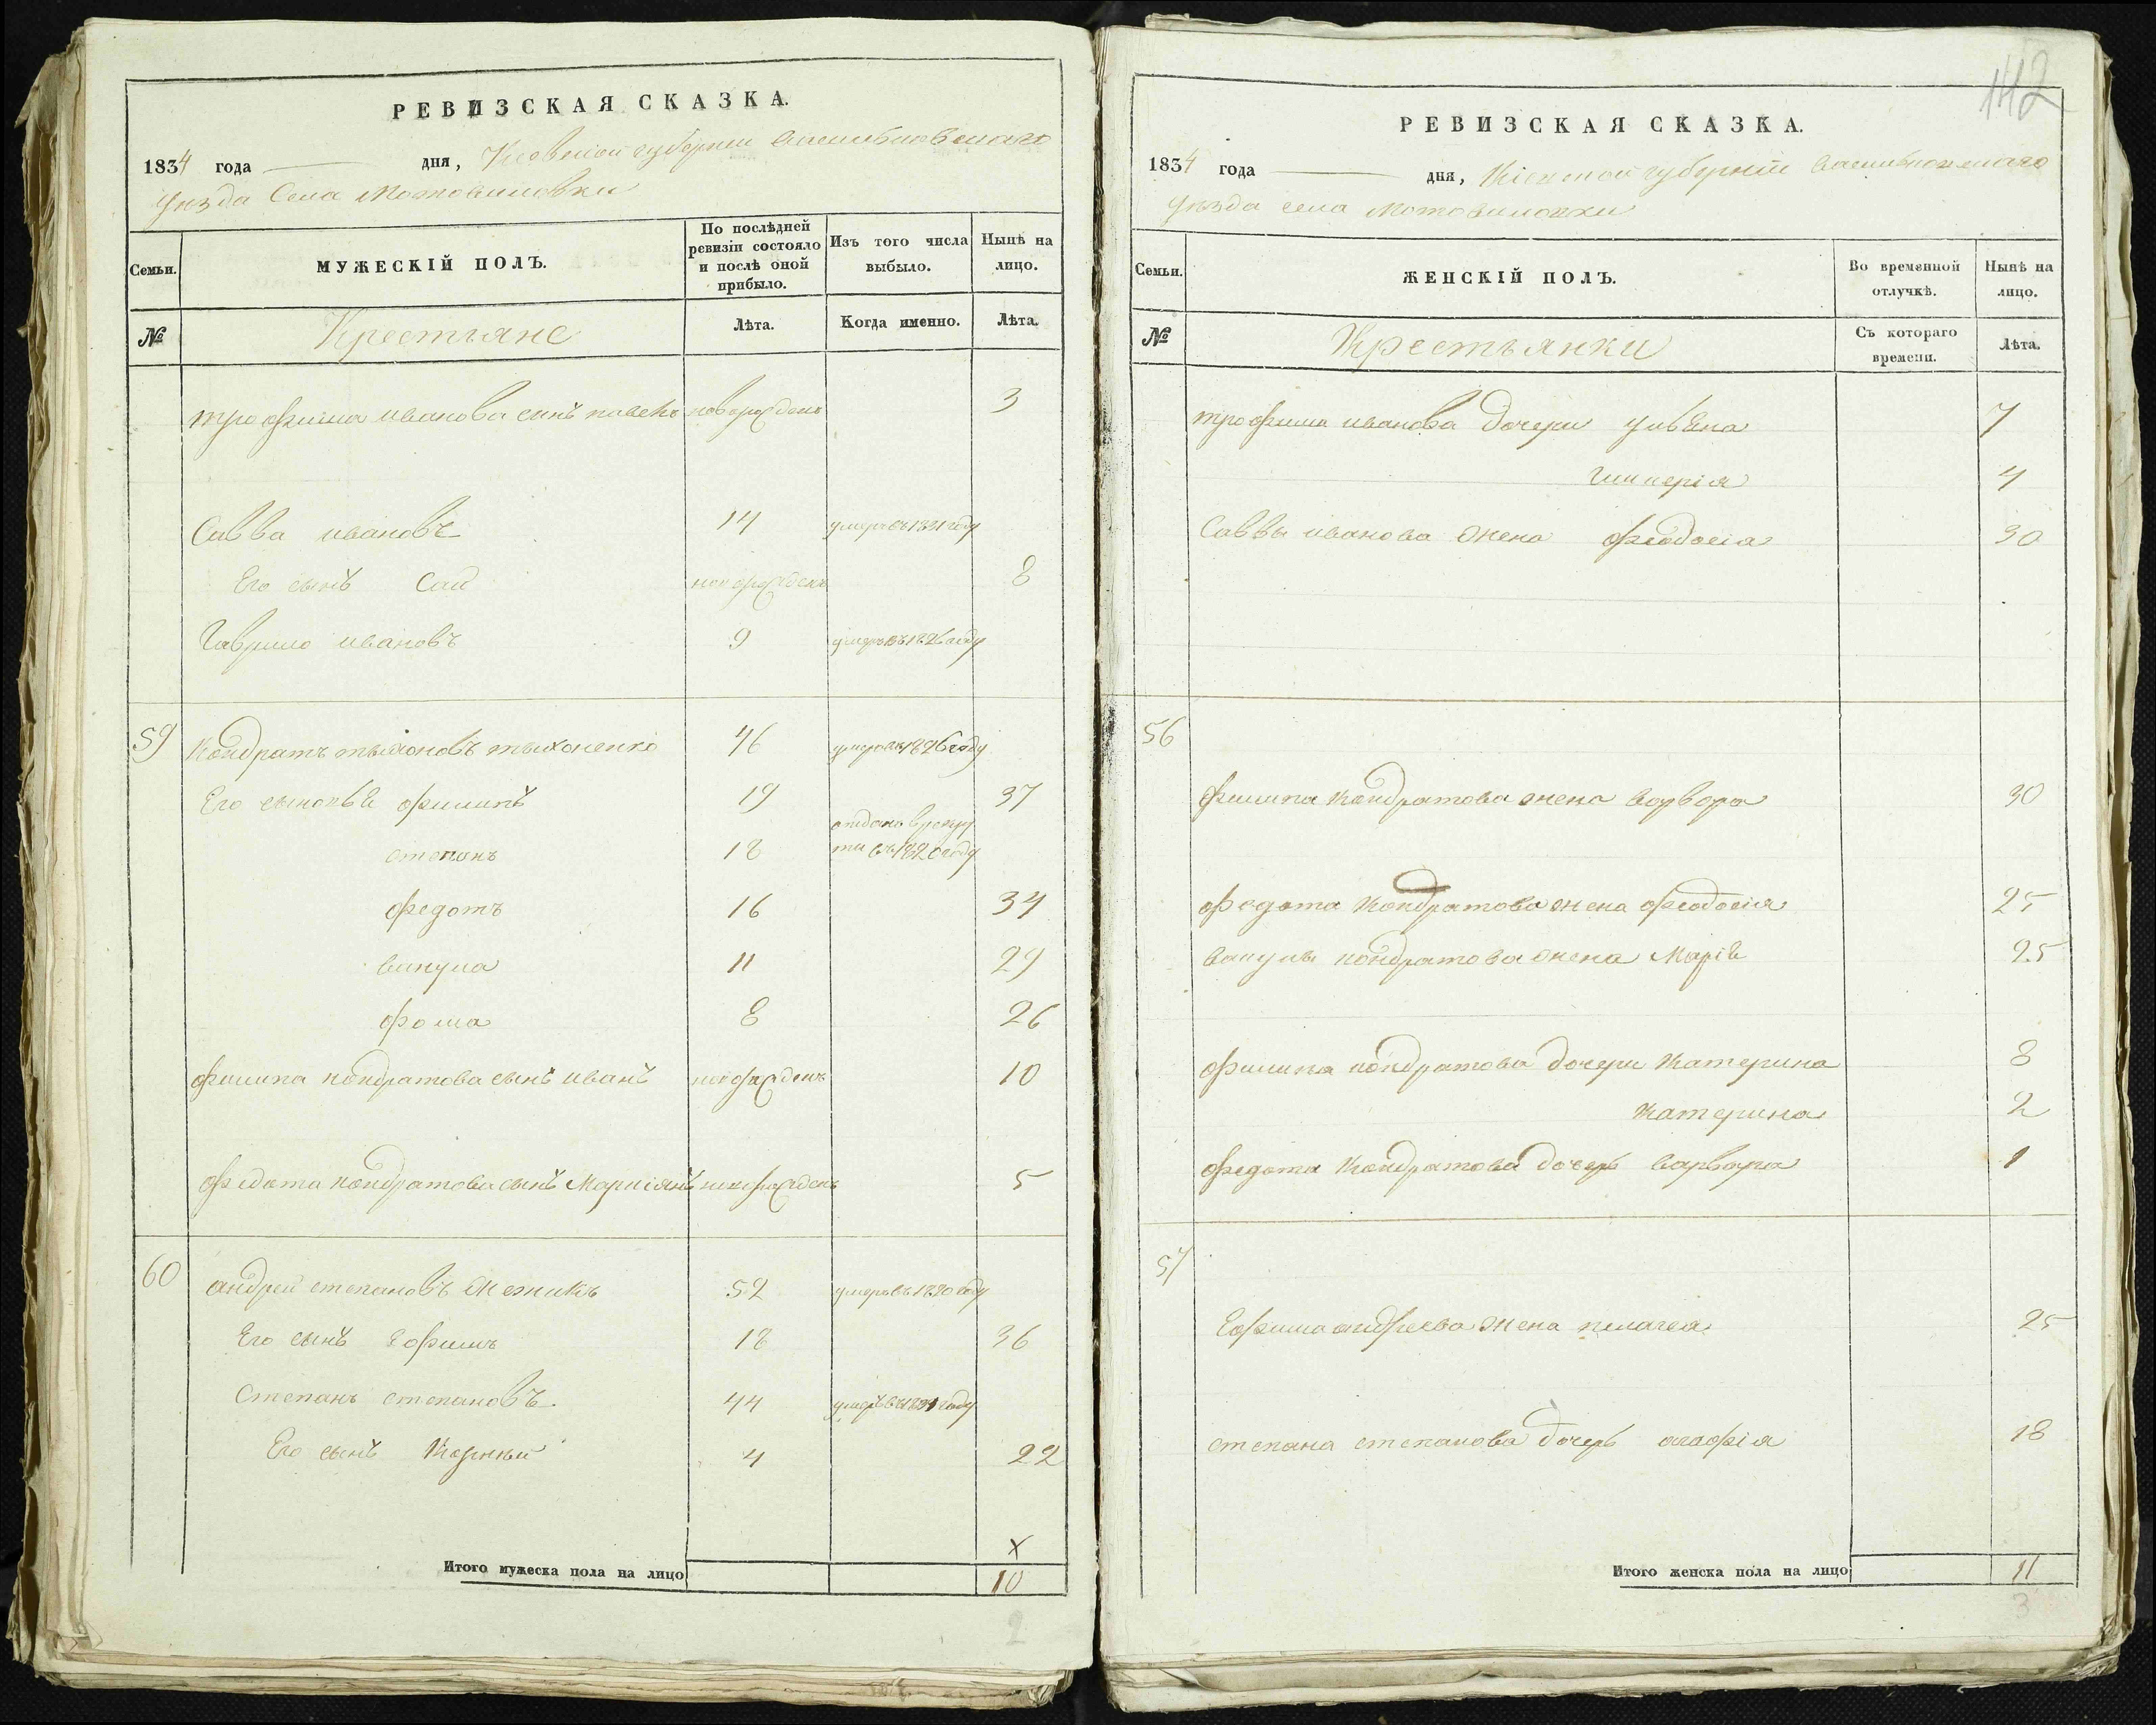 РЕВИЗСКАЯ СКАЗКА.
1834 года дня, Киевской губернии Васильковскаго
уезда Села Мотовиловки
Семьи.
МУЖЕСКІЙ ПОЛЪ.
По послѣдней ревизіи состояло и послѣ оной прибыло.
Изъ того числа выбыло.
Нынѣ на лицо.
№
Крестьяне
Лѣта.
Когда именно.
Лѣта.
трофима иванова сынъ новорожденъ 3
Савва ивановъ 14 умеръ въ году
Его сынъ новорожденъ 8
Гаврило ивановъ 9 умеръ въ 1826 году
59 Кондратъ тыхоновъ тыхоненко 46 умеръ въ 1826 году
Его сыновьѣ филипъ 19 37
степанъ 18 отданъ в рекру
ты въ 1820 году
федотъ 16 34
вакула 11 29
фома 8 26
филипа кондратова сынъ иванъ новорожденъ 10
федота кондратова сынъ Маркіянъ новорожденъ 5
60 андрей степановъ 52 умеръ въ 1830 году
Его сынъ Ефимъ 18 36
Степанъ степановъ. 44 умеръ въ году
Его сынъ Корнѣй 4 22
х
Итого мужеска пола на лицо 10
2
142
РЕВИЗСКАЯ СКАЗКА.
1834 года дня, Кіевской губерніи Васильковскаго
уѣзда села Мотовиловки
Семьи.
ЖЕНСКІЙ ПОЛЪ.
Во временной отлучкѣ.
Нынѣ на лицо.
№
Крестьянки
Съ котораго времени.
Лѣта.
трофима иванова дочери ульѣна 7
4
Саввы иванова жена феодосіа 30
56
филипа Кондратова жена ворвора 30
федота Кондратова жена феодосія 25
вакулы кондратова жена Марія 25
филипа кондратова дочери Катерина 8
Катерина 2
федота Кондратова дочерь варвара 1
57
Ефима андреева жена пелагея 25
степана степанова дочерь агафія 18
Итого женска пола на лицо 11
3